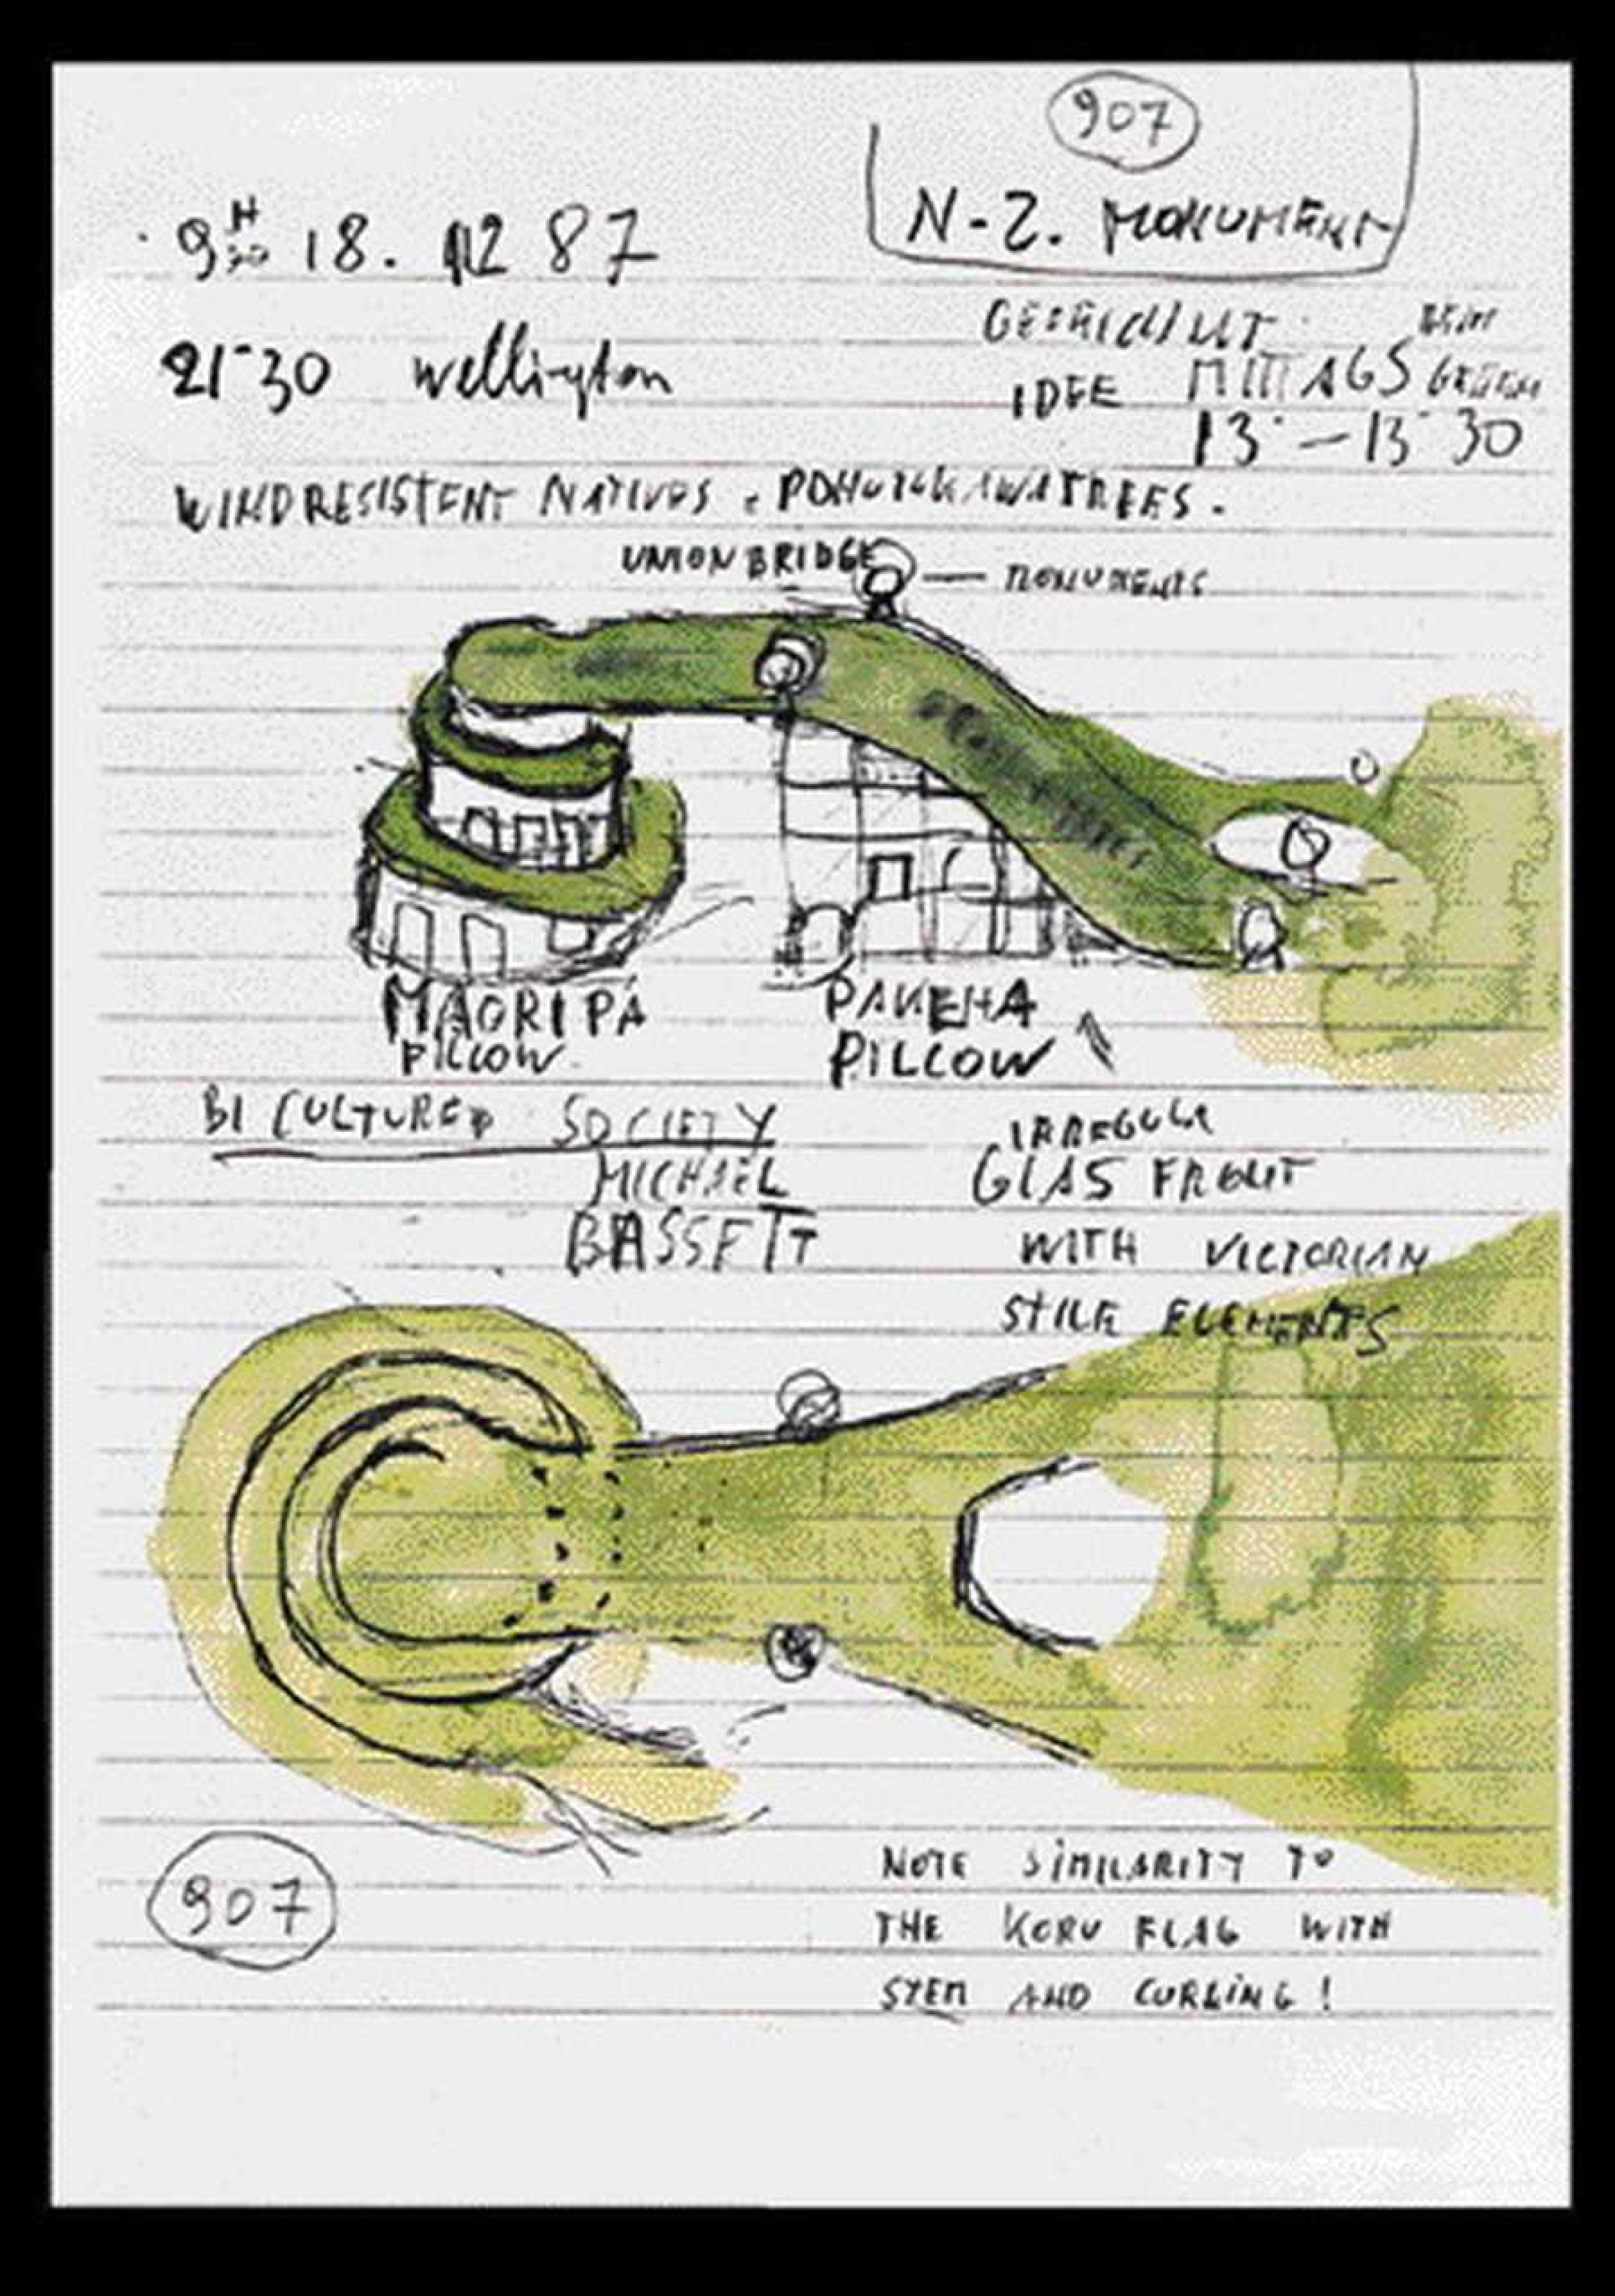 907
N-Z. MONUMENT
9H30 18. 12 87
21-30 wellington
IDEE MITTAGS
13 - 13 30
WINDRESISTENT NATIVES . POHUTUKAWATREES.
UNION BRIDGE — MONUMENTS
MAORI PÁ PAKEHA
PILLOW. PILLOW
BI CULTURED SOCIETY
MICHAEL
BASSETT
IRREGULAR
GLAS FRONT
WITH VICTORIAN
STILE ELEMENTS
907
NOTE SIMILARITY TO
THE KORU FLAG WITH
STEM AND CURLING!